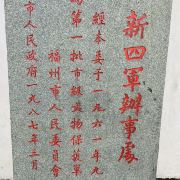 新四軍辦事處
經本委于一九六一年九
為第一批市級文物保護單
福州市人民委員會
市人民政府一九八七年二月